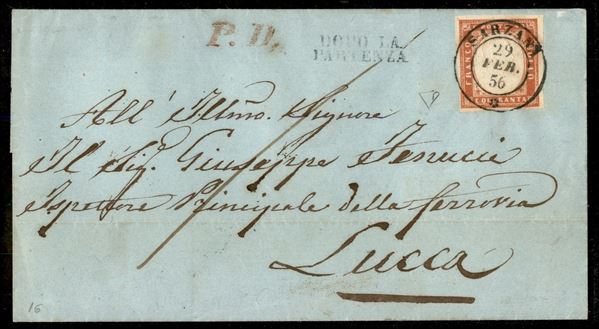 P. D.
DOPO LA
PARTENZA
SARZANA
29
FEB.
56
FRANCO
BOLLO
QUARANTA
All' Illmo. Signore
Il Sig. Giuseppe
Ispettore Principale della ferrovia
Lucca
16